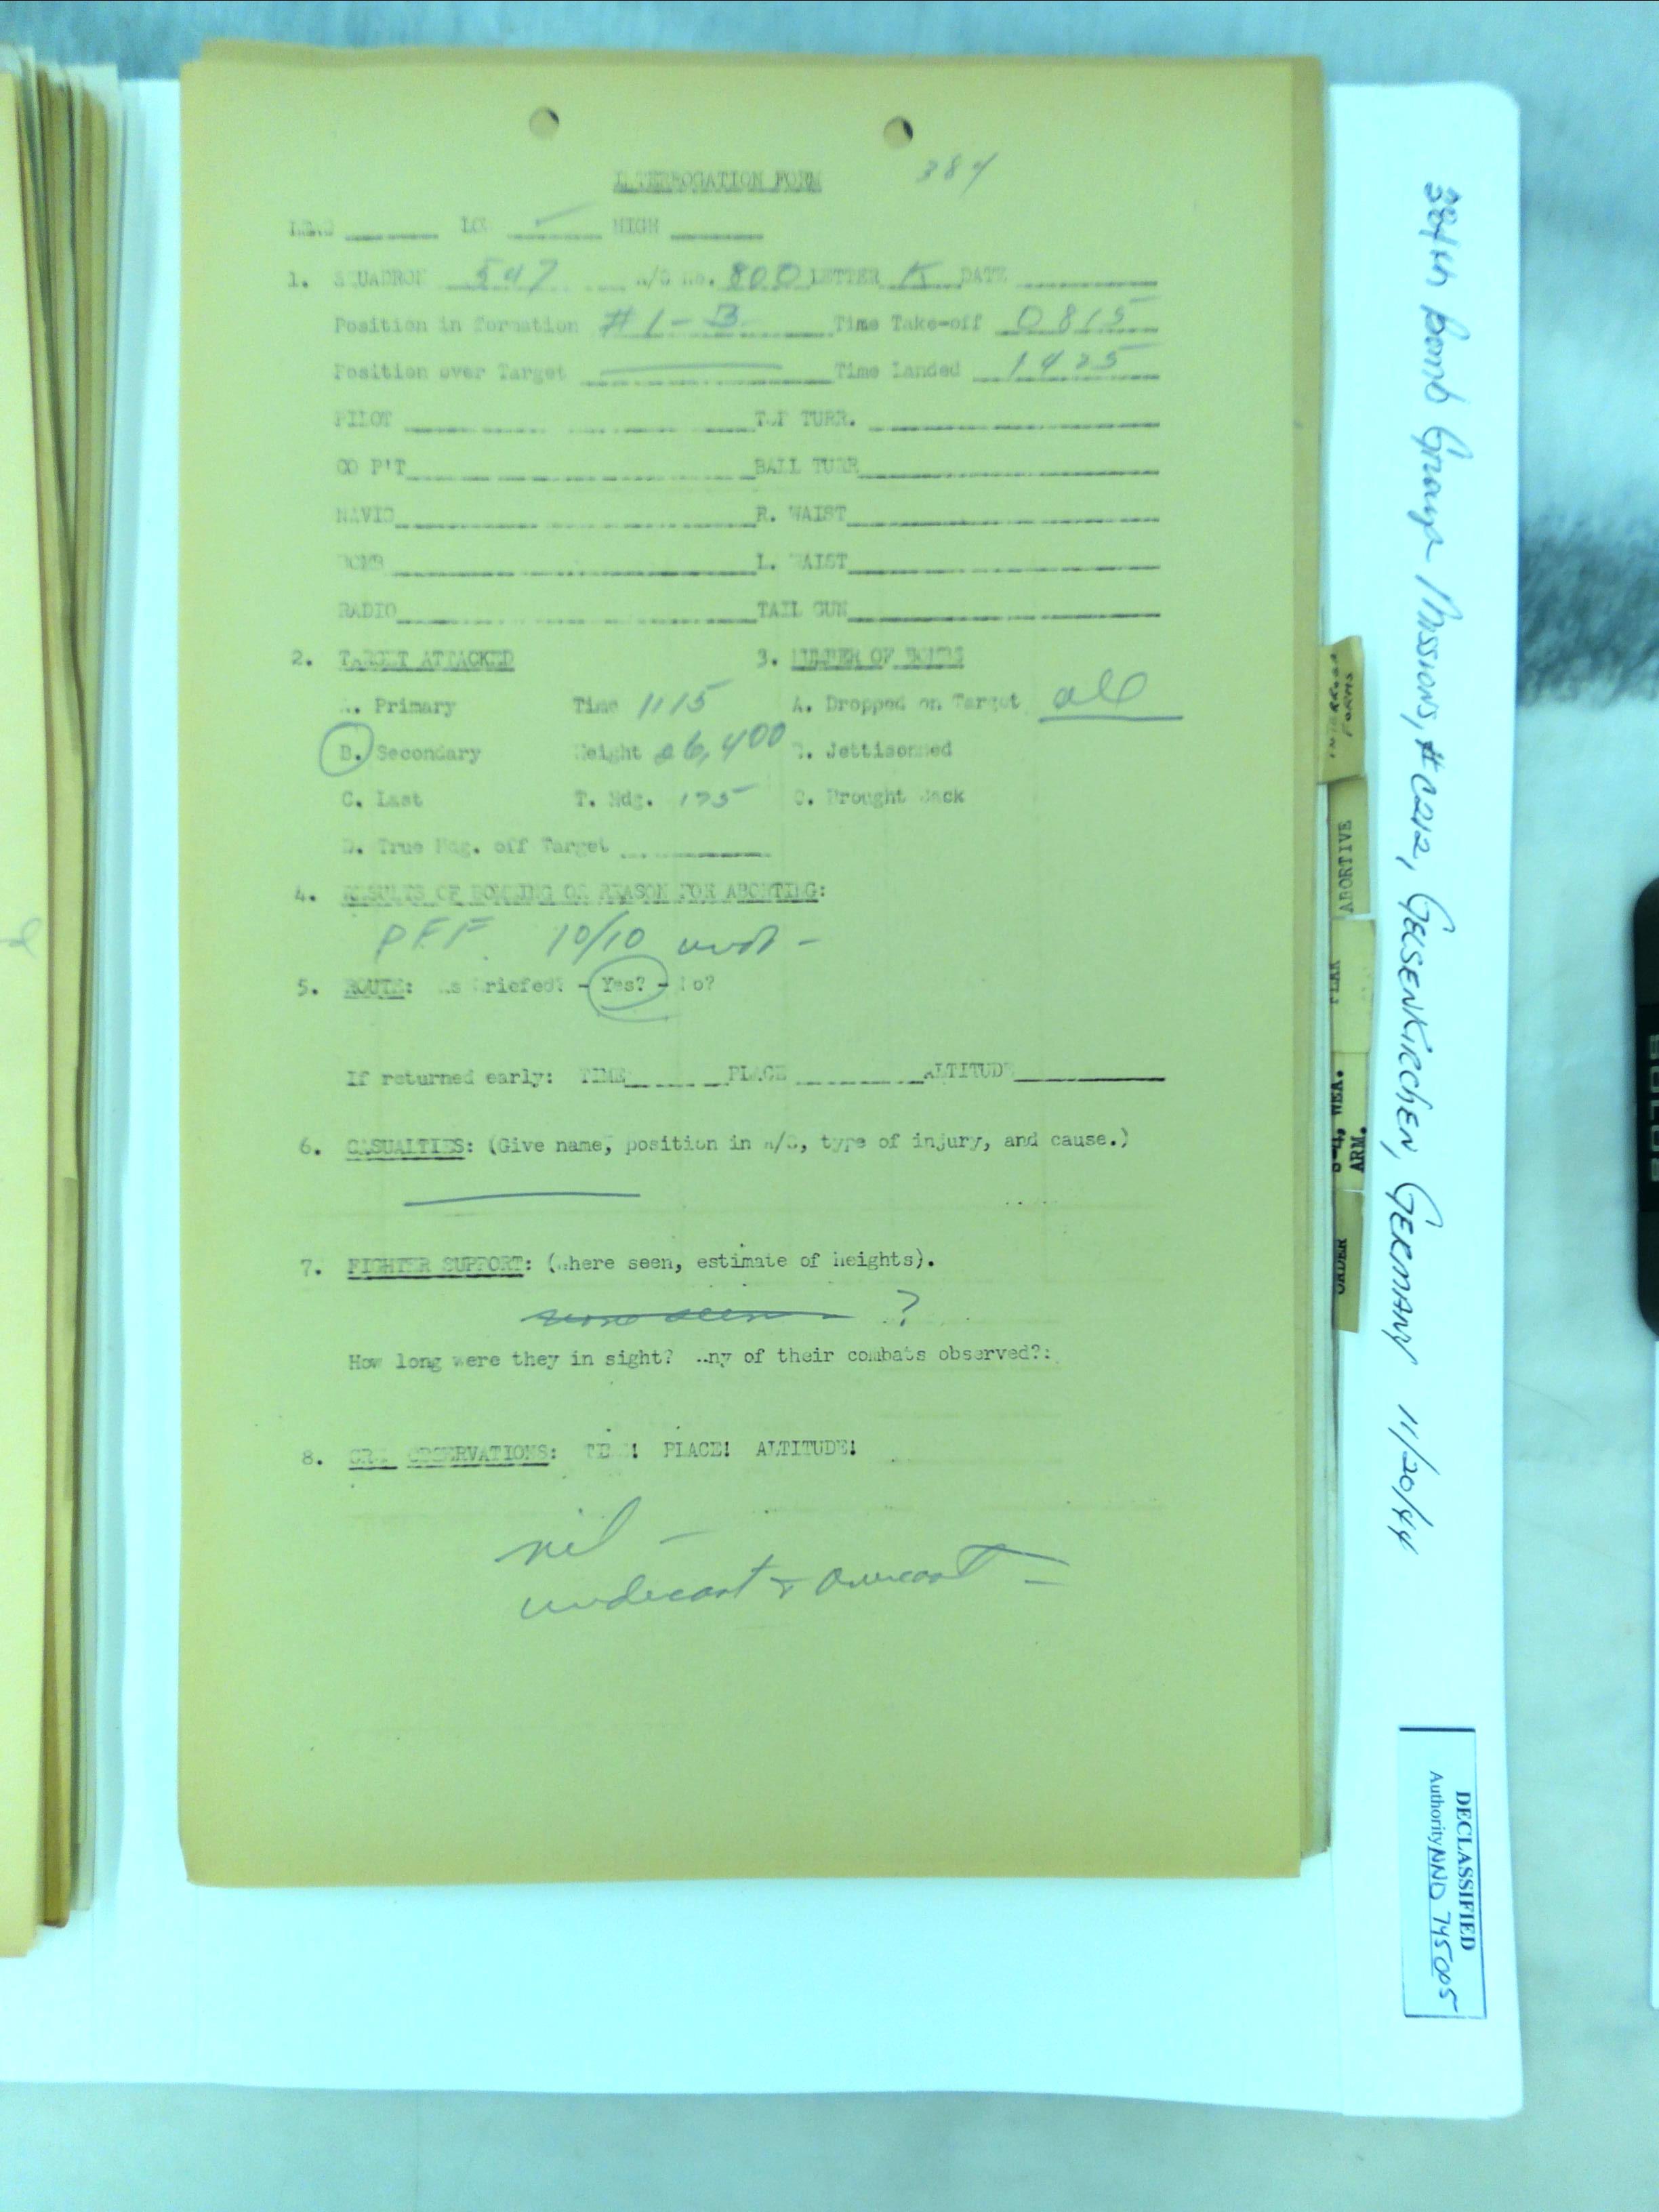 INTERROGATION FORM 384
LEAD LOW HIGH
1. SQUADRON 547 A/C No. 800 LETTER K DATE
Position in formation #1-B Time Take-off 0815
Position over Target Time Landed 1425
PILOT TOP TURR.
CO P'T BALL TURR
NAVIG R. WAIST
BOMB L. WAIST
RADIO TAIL GUN
2. TARGET ATTACKED 3. NUMBER OF BOMBS
A. Primary Time 1115 A. Dropped on Target all
B. Secondary Height 26,400 B. Jettisonned
C. Last T. Hdg. 175 C. Brought Back
D. True Hdg. off Target
4. RESULTS OF BOMBING OR REASON FOR ABORTING:
PFF 10/10 und -
5. ROUTE: As Briefed? - Yes? - No?
If returned early: TIME PLACE ALTITUDE
6. CASUALTIES: (Give name, position in A/C, type of injury, and cause.)
7. FIGHTER SUPPORT: (Where seen, estimate of heights).
none seen ?
How long were they in sight? Any of their combats observed?:
8. OBSERVATIONS: TIME! PLACE! ALTITUDE!
nil -
undercast & overcast -
INTERROG
FORMS
ABORTIVE
FLAK
S-4, WEA.
ARM.
ORDER
384th Bomb Group Missions, #C212, GELSENKIRCHEN, GERMANY 11/20/44
DECLASSIFIED
Authority NND 745005